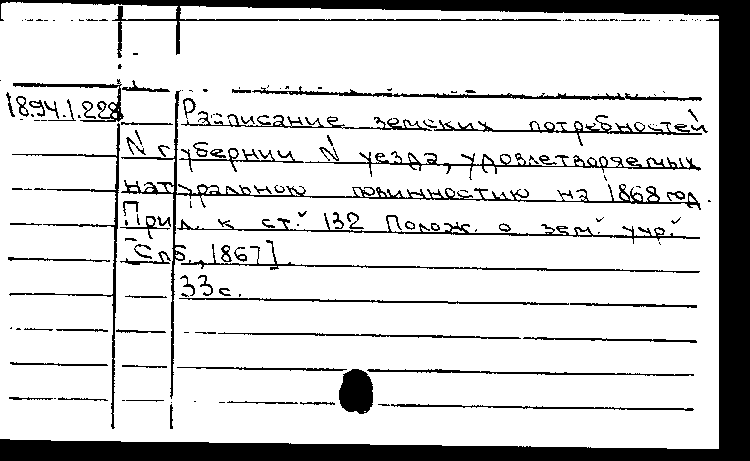 18.94.1.228 Расписание земских потребностей
N губернии N уезда, удовлетворяемых
натуральною повинностию на 1868 год.
Прил. к ст. 132 Полож. о зем. учр.
[Спб., 1867].
33 с.